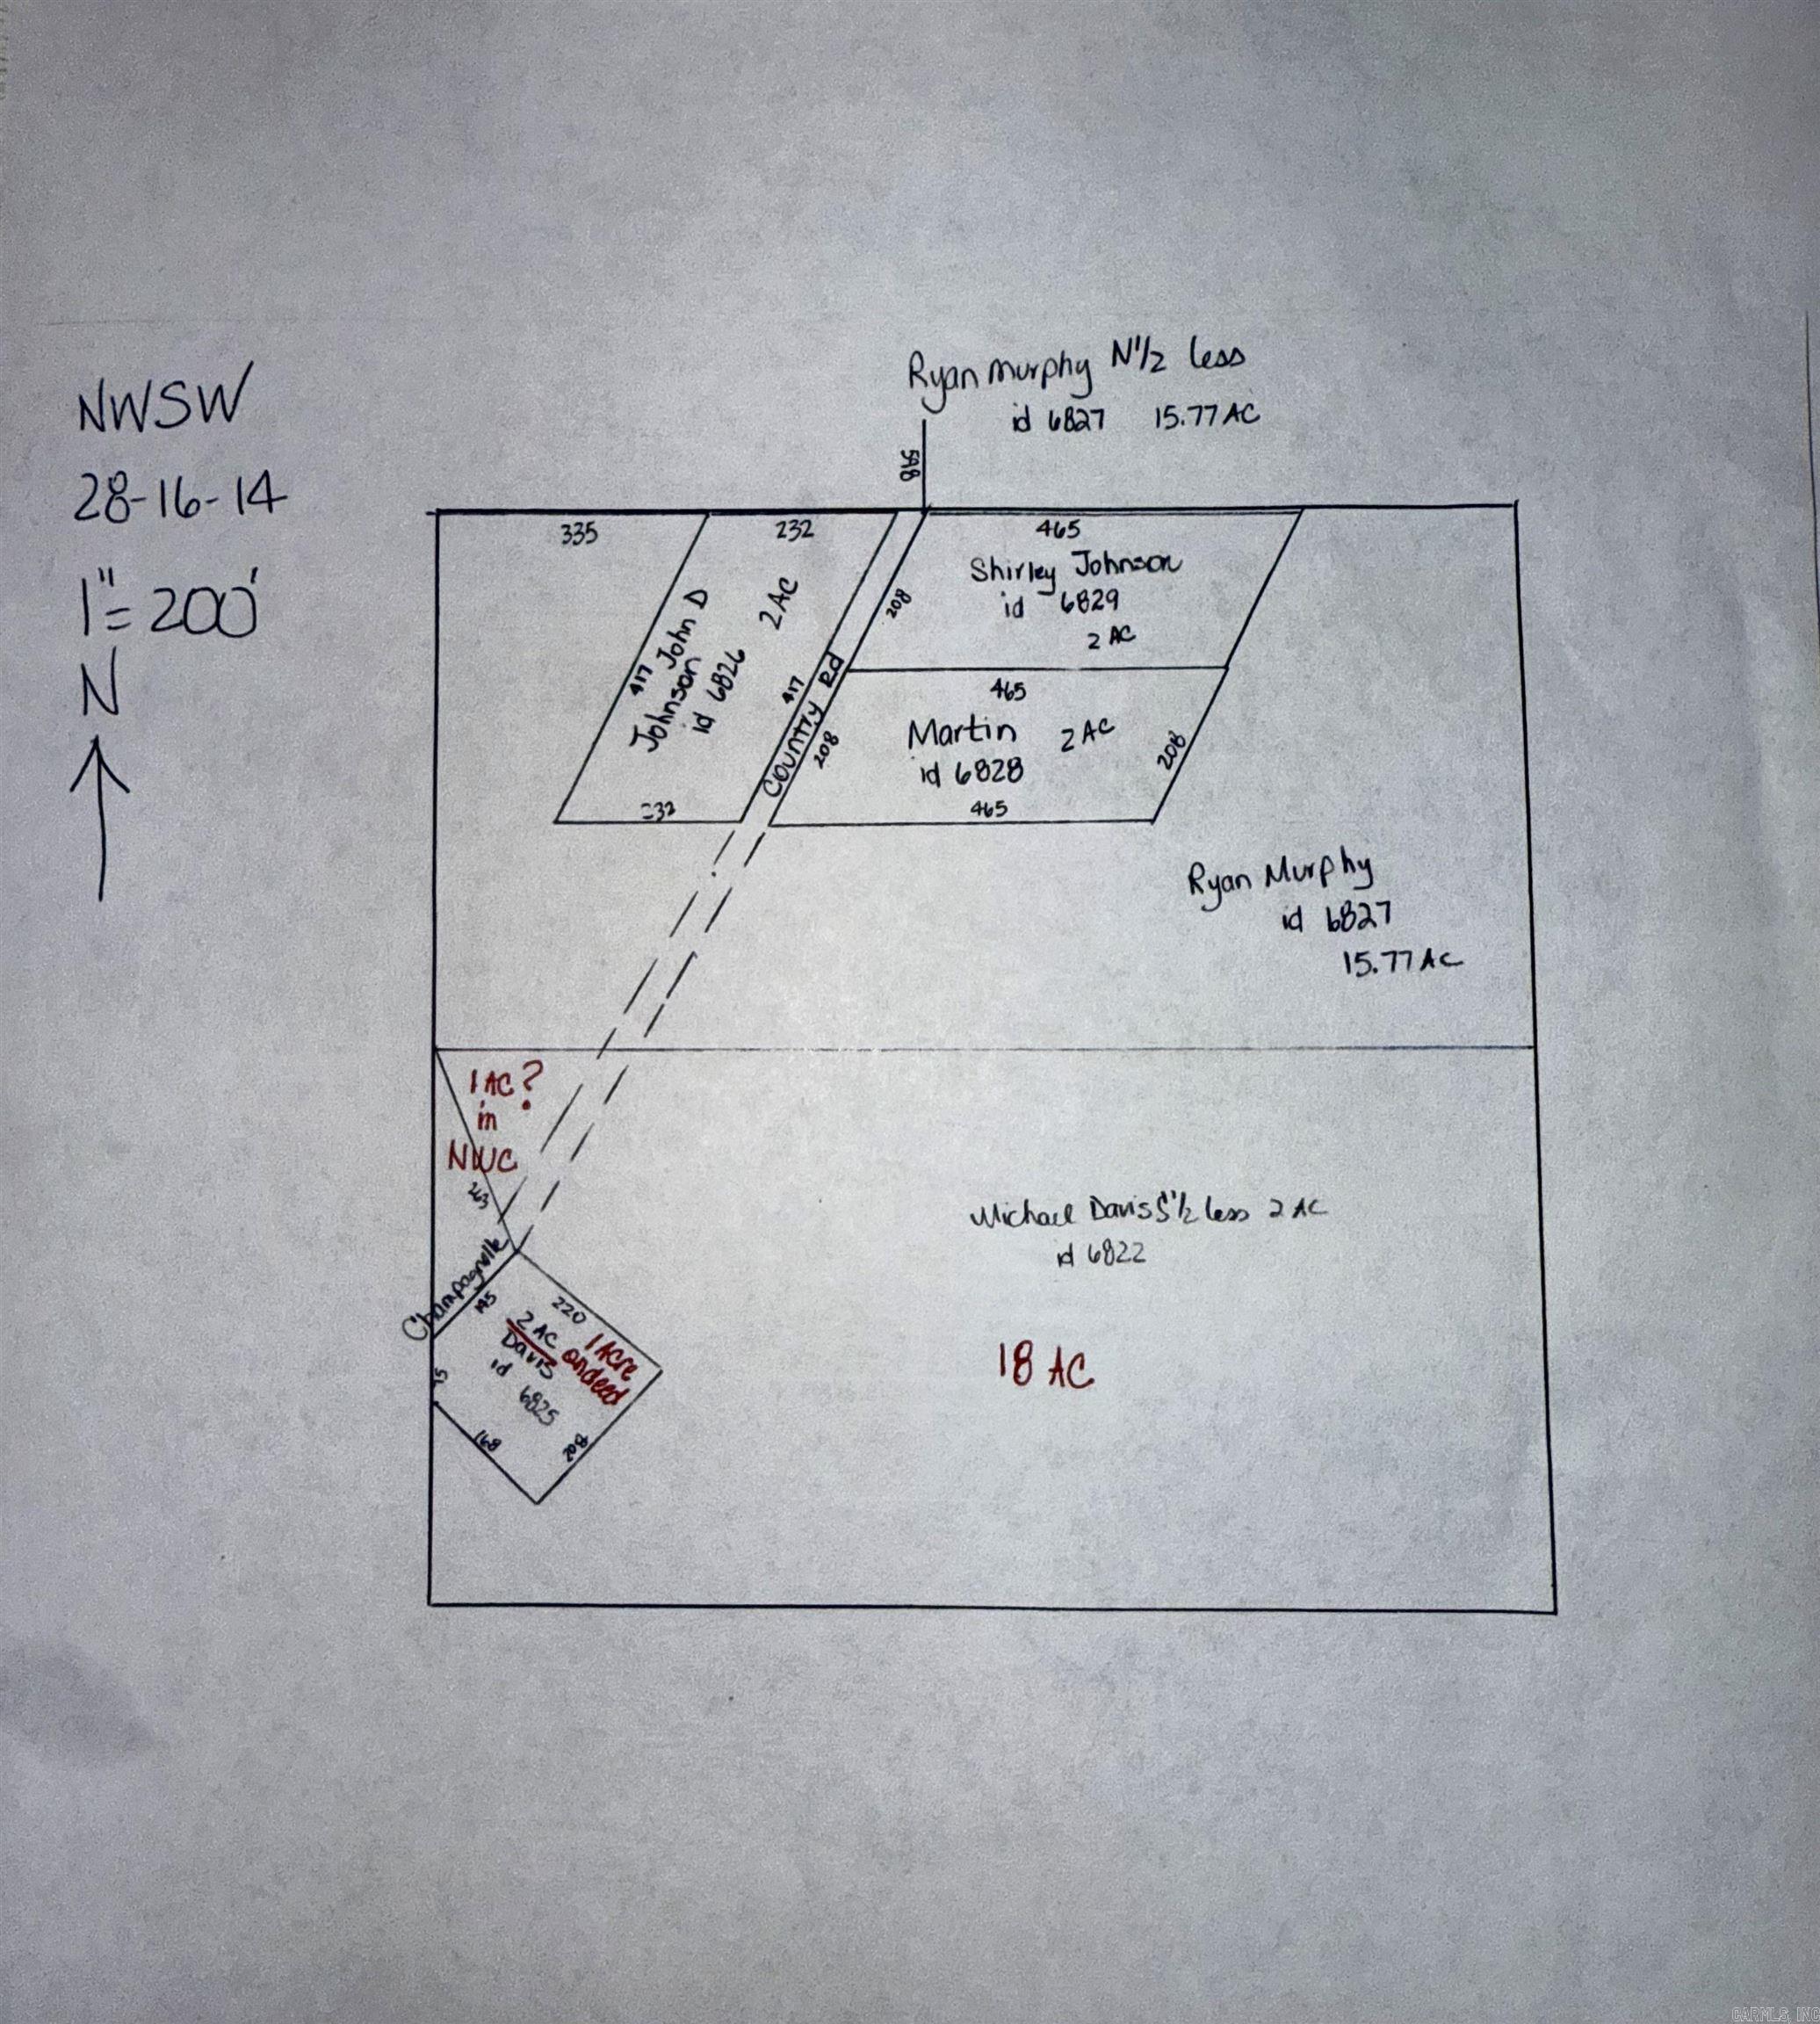 NWSW
28-16-14
1"=200'
N
Ryan Murphy N1/2 less
id 6827 15.77 AC
598
335
232
465
417
John D
Johnson
id 6826
2 AC
417
County Rd
208
208
Shirley Johnson
id 6829
2 AC
465
Martin 2 AC
id 6828
208
465
232
Ryan Murphy
id 6827
15.77 AC
1 AC?
in
NWC
263
Champagnolle
195
220
2 AC
Davis
id 6825
1 Acre
on deed
168
208
Michael Davis S1/2 less 2 AC
id 6822
18 AC
CARMLS, INC